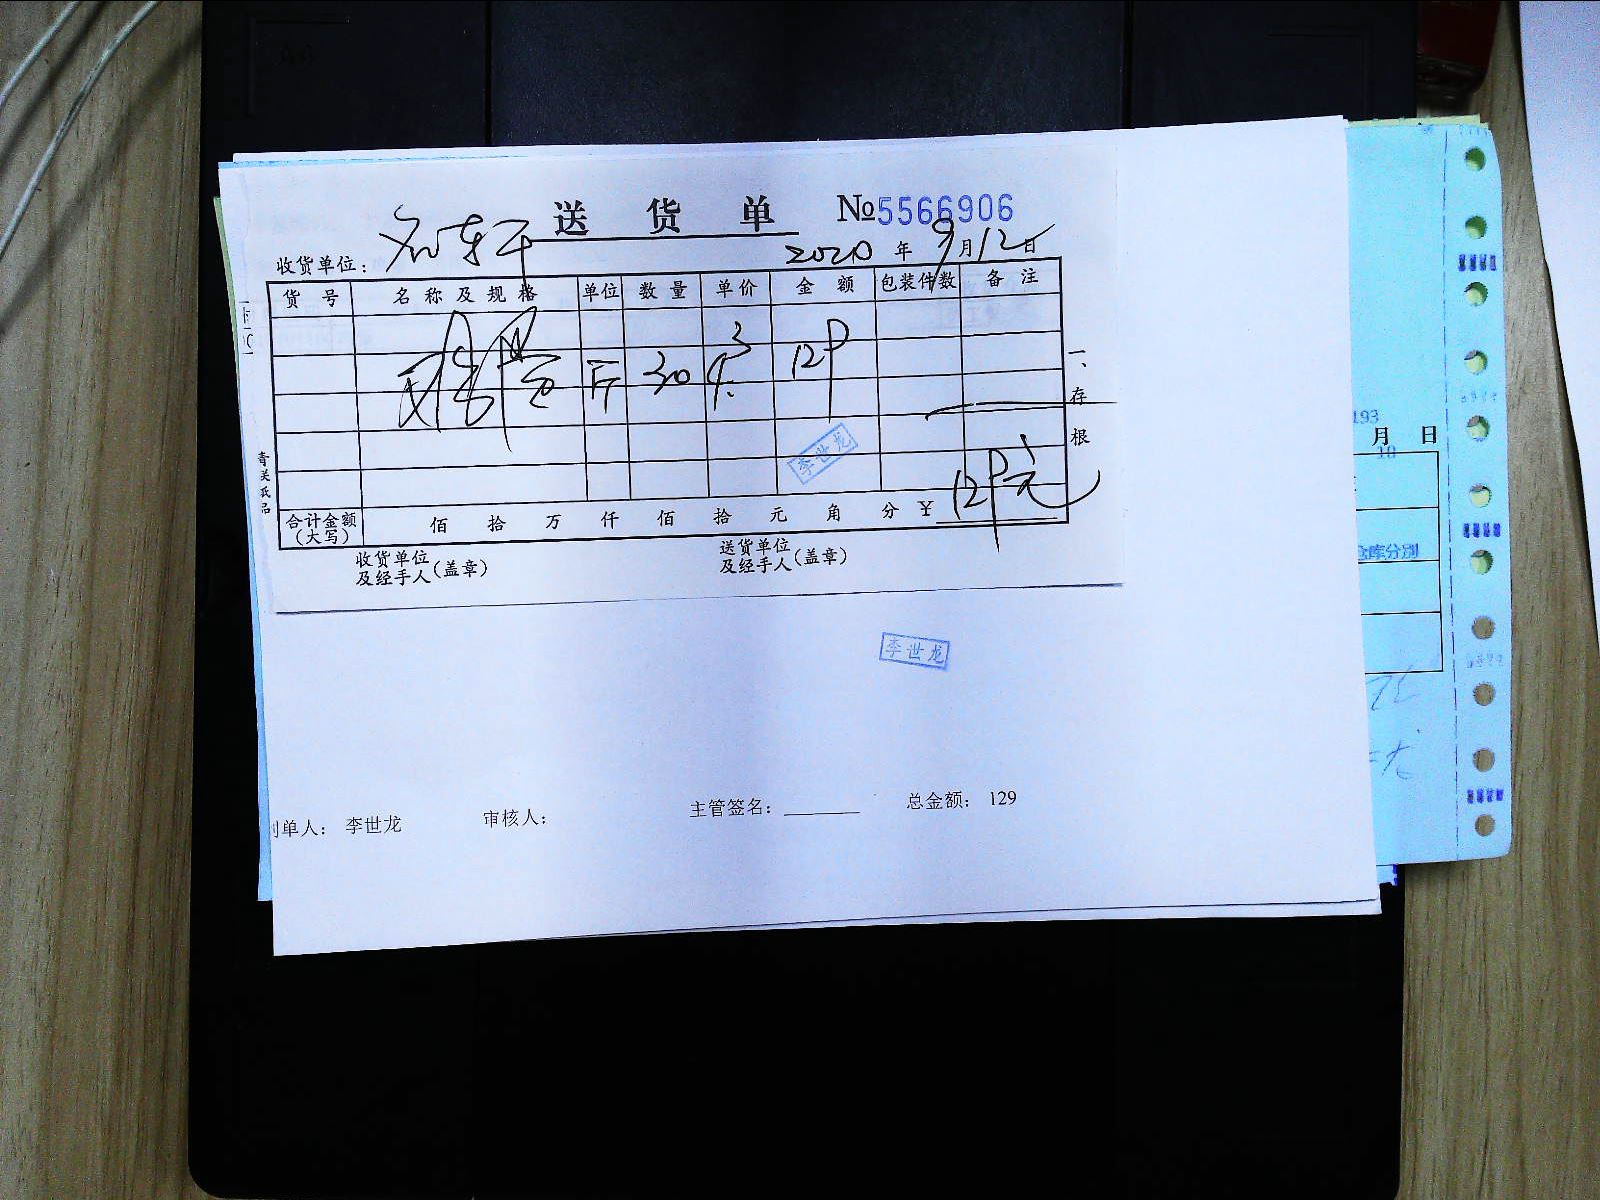 送 货 单 №5566906
收货单位: 2020 年 9 月 12 日
货 号 名 称 及 规 格 单位 数 量 单 价 金 额 包装件数 备 注
斤 30 4.3 129
李世龙
129元
合计金额(大写) 佰 拾 万 仟 佰 拾 元 角 分 ¥
收货单位及经手人(盖章) 送货单位及经手人(盖章)
一、存根
李世龙
制单人: 李世龙 审核人: 主管签名: 总金额: 129
193
月 日
10
仓库分别